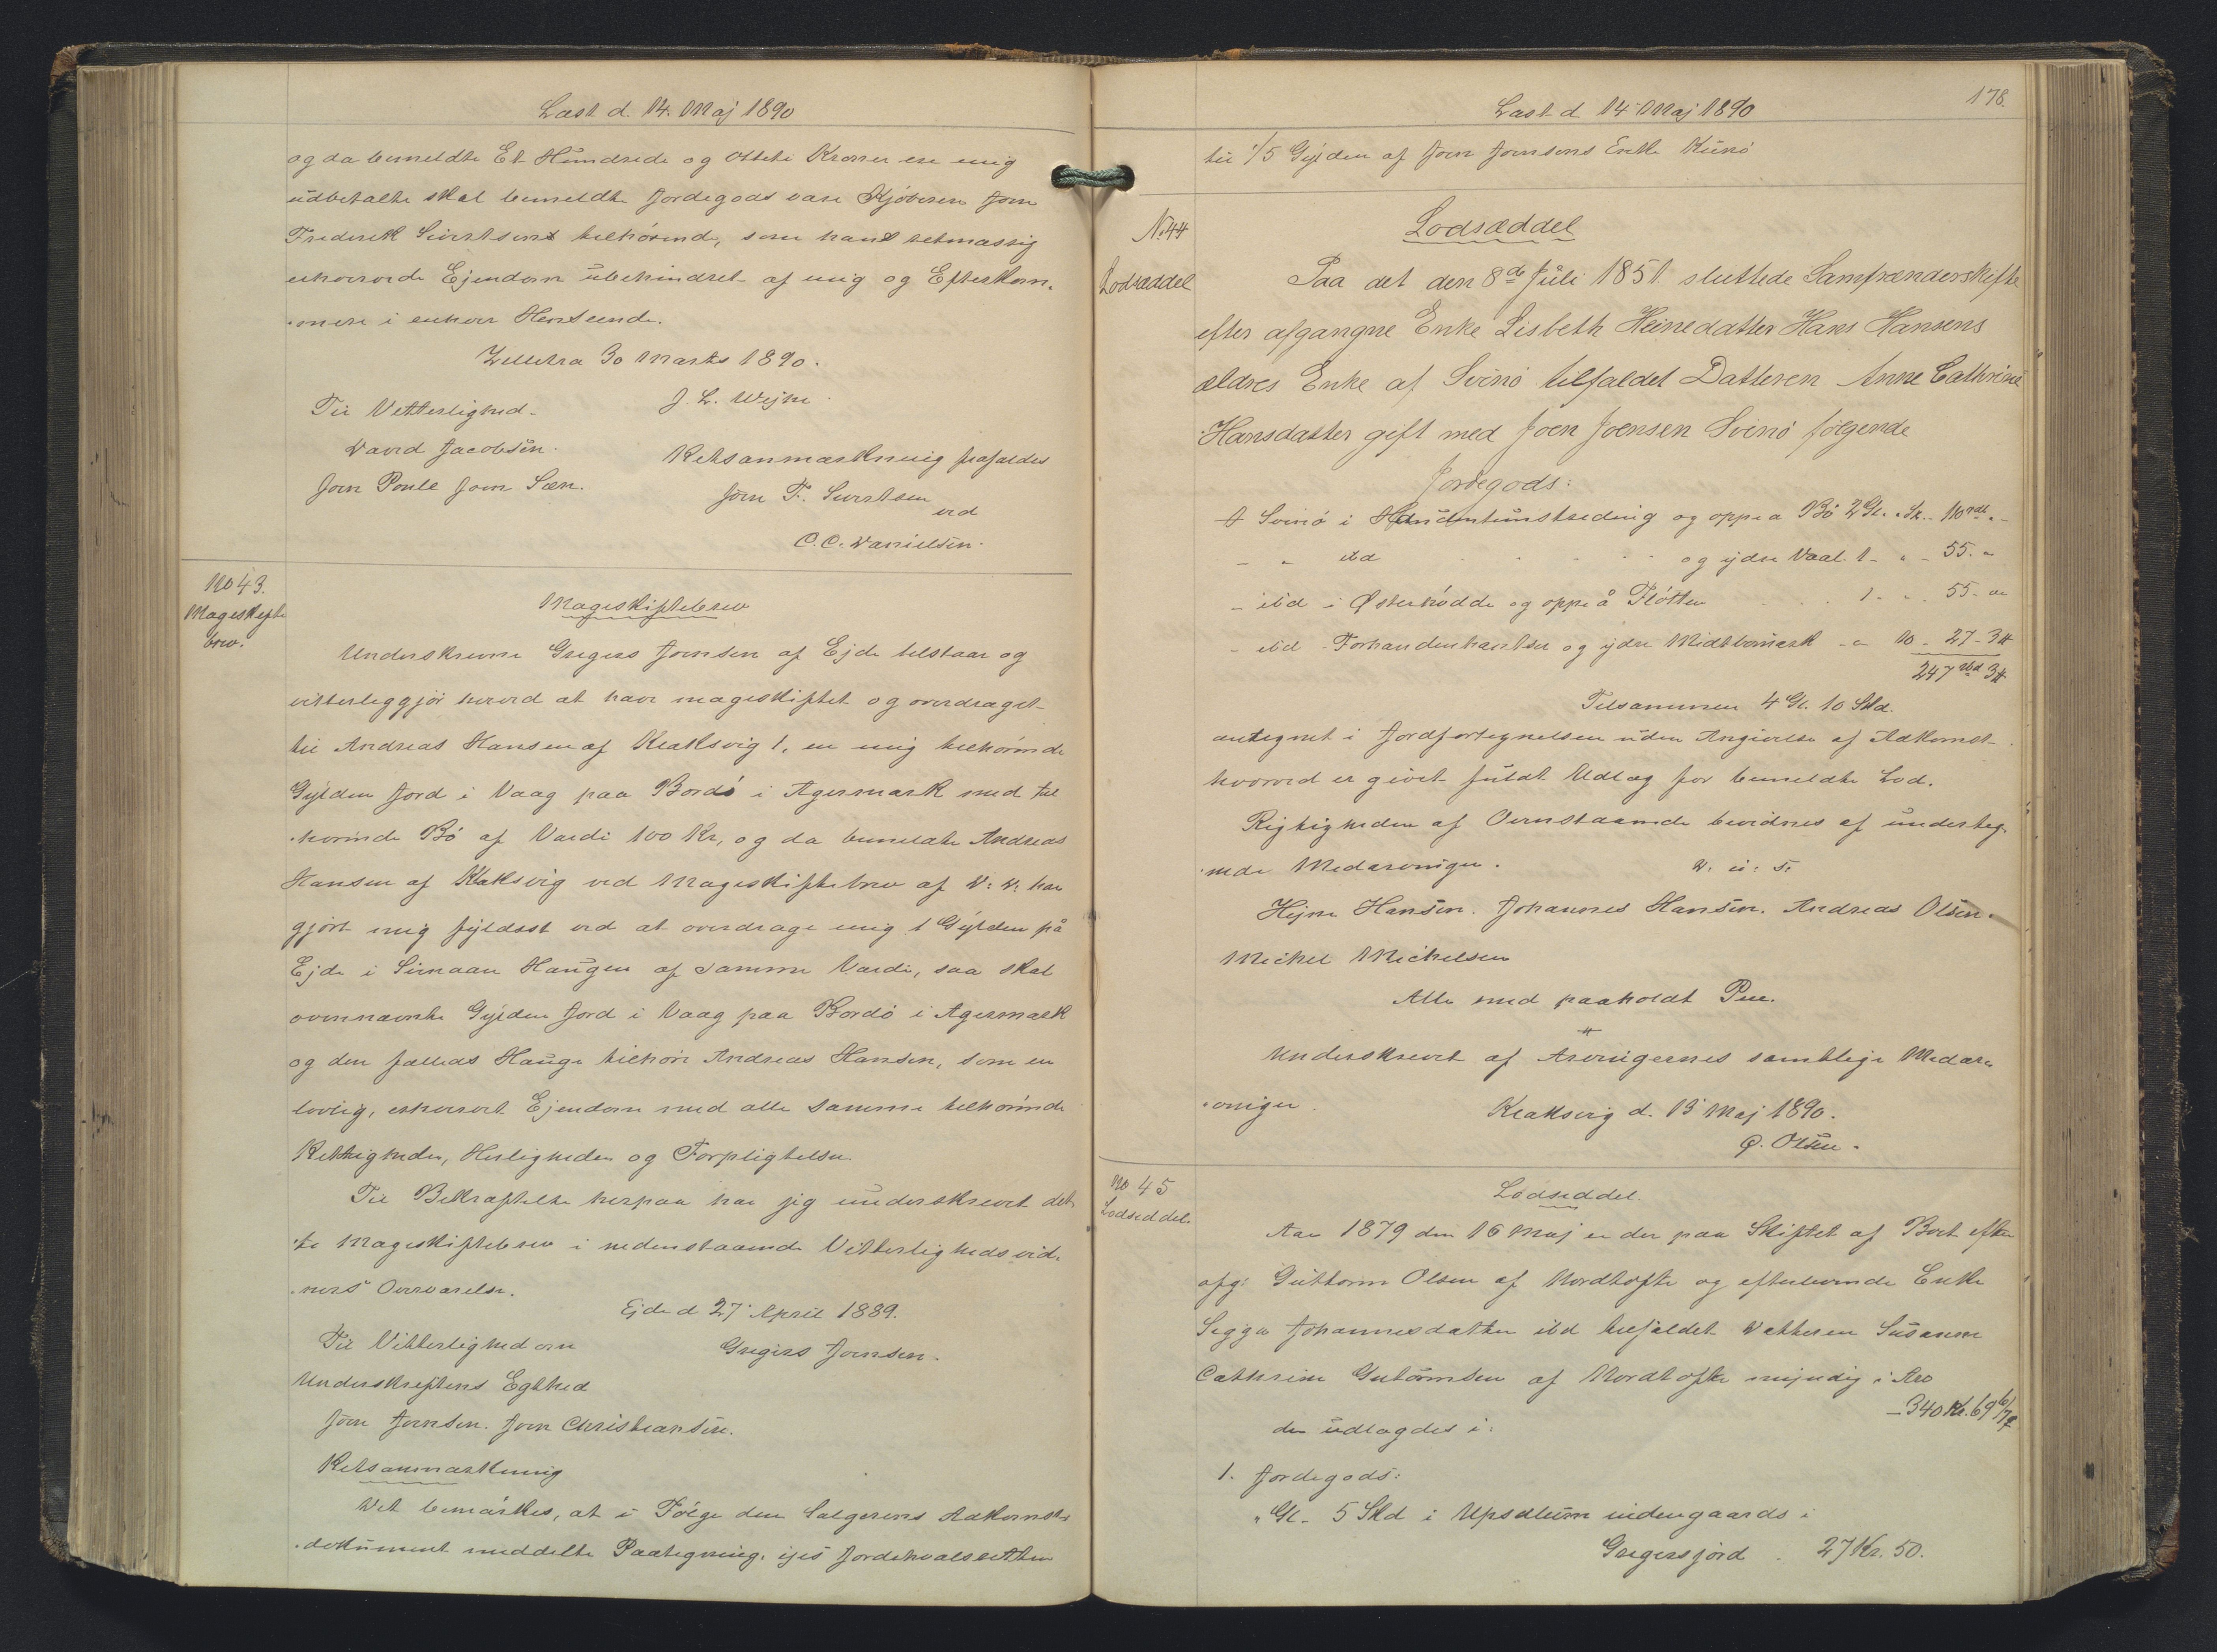 Læst d. 14. Maj 1890
og da bemeldte Et Hundrede og Otteti Kroner ere mig
udbetalte skal bemeldte Jordegods være Kjøberen Joen
Frederik Sivertsens tilhørende, som hans retmæssig
erhvervede Ejendom ubehindret af mig og Efterkom-
-mere i enhver Henseende.
30 Marts 1890.
Til Vitterlighed. J. L. Wejhe.
David Jacobsen. Retsanmærkning frafaldes
Joen Poule Joen Søn. Joen F. Sivertsen
ved
C. C. Danielsen.
No 43.
Mageskifte
brev.
Mageskiftebrev
Underskrevne Gregers Joensen af Ejde tilstaar og
vitterliggjør herved at have mageskiftet og overdraget
til Andreas Hansen af Klaksvig 1, en mig tilhørende
Gylden Jord i Vaag paa Bordø i Agermark med til
-hørende Bø af Værdi 100 Kr, og da bemeldte Andreas
Hansen af Klaksvig ved Mageskiftebrev af D: D: har
gjort mig fyldest ved at overdrage mig 1 Gylden på
Ejde i Haugen af samme Værdi, saa skal
ovennævnte Gylden Jord i Vaag paa Bordø i Agermark
og den fælleds Hauge tilhøre Andreas Hansen, som en
lovlig, erhvervet Ejendom med alle samme tilhørende
Rettigheder, Herligheder og Forpligtelser.
Til Bekræftelse herpaa har jeg underskrevet det-
-te Mageskiftebrev i nedenstaaende Vitterlighedsvid-
-ners Overværelse.
Ejde d 27' April 1889.
Til Vitterlighed om Gregers Joensen.
Underskriftens Egthed
Joen Joensen. Joen Christiansen.
Retsanmærkning
Det bemærkes, at i Følge den Sælgerens Adkomst-
-dokument meddelte Paategning. Jordehvalsretten
178.
Læst d 14 Maj 1890
til 1/5 Gylden af Joen Joensens Enke Kunø
N. 44
Lodsæddel
Lodsæddel
Paa det den 8de Juli 1851 sluttede Samfrænderskifte
efter afgangne Enke Lisbeth Heinedatter Hans Hansens
ældres Enke af Svinø tilfaldet Datteren Anne Cathrine
Hansdatter gift med Joen Joensen Svinø følgende
Jordegods:
Svinø i og oppe a Bø 2 Gl. " Sk. - 110 rdl. -
- " ibd og ydre Vaal. 1 - " - 55. -
- ibd i Østerhødde og oppe å Fløtten 1 - " 55. "
- ibd - og ydre Midtbømark - " 10 - 27 - 3 #
247 rbd 3 #
Tilsammen 4 Gl. 10 Skd.
antegnet i Jordfortegnelsen uden Angivelse af Adkomst
hvorved er givet fuldt Udlæg for bemeldte Lod.
Rigtigheden af Ovenstaaende bevidnes af underteg-
-nede Medarvinger. D. u: S.
Hejne Hansen. Johannes Hansen. Andreas Olsen.
Michel Michelsen
Alle med paaholdt Pen.
#
Underskrevet af Arvingernes samtlige Medar-
-vinger. Klaksvig d. 13' Maj 1890.
O. Olsen.
No 45
Lodseddel.
Lodseddel.
Aar 1879 den 16 Maj er der paa Skiftet af Boet efter
afg: Guttorm Olsen af Nordtofte og efterlevende Enke
Johannesdatter ibd tilfaldet Datteren Susanne
Cathrine Gutormsen af Nordtofte umyndig i Arv
- 340 Kr. 69 6/7 ø
der udlagdes i:
1. Jordegods:
" Gl. 5 Skd i Upsalum indengaards i
Gregersjord . 27 Kr. 50.